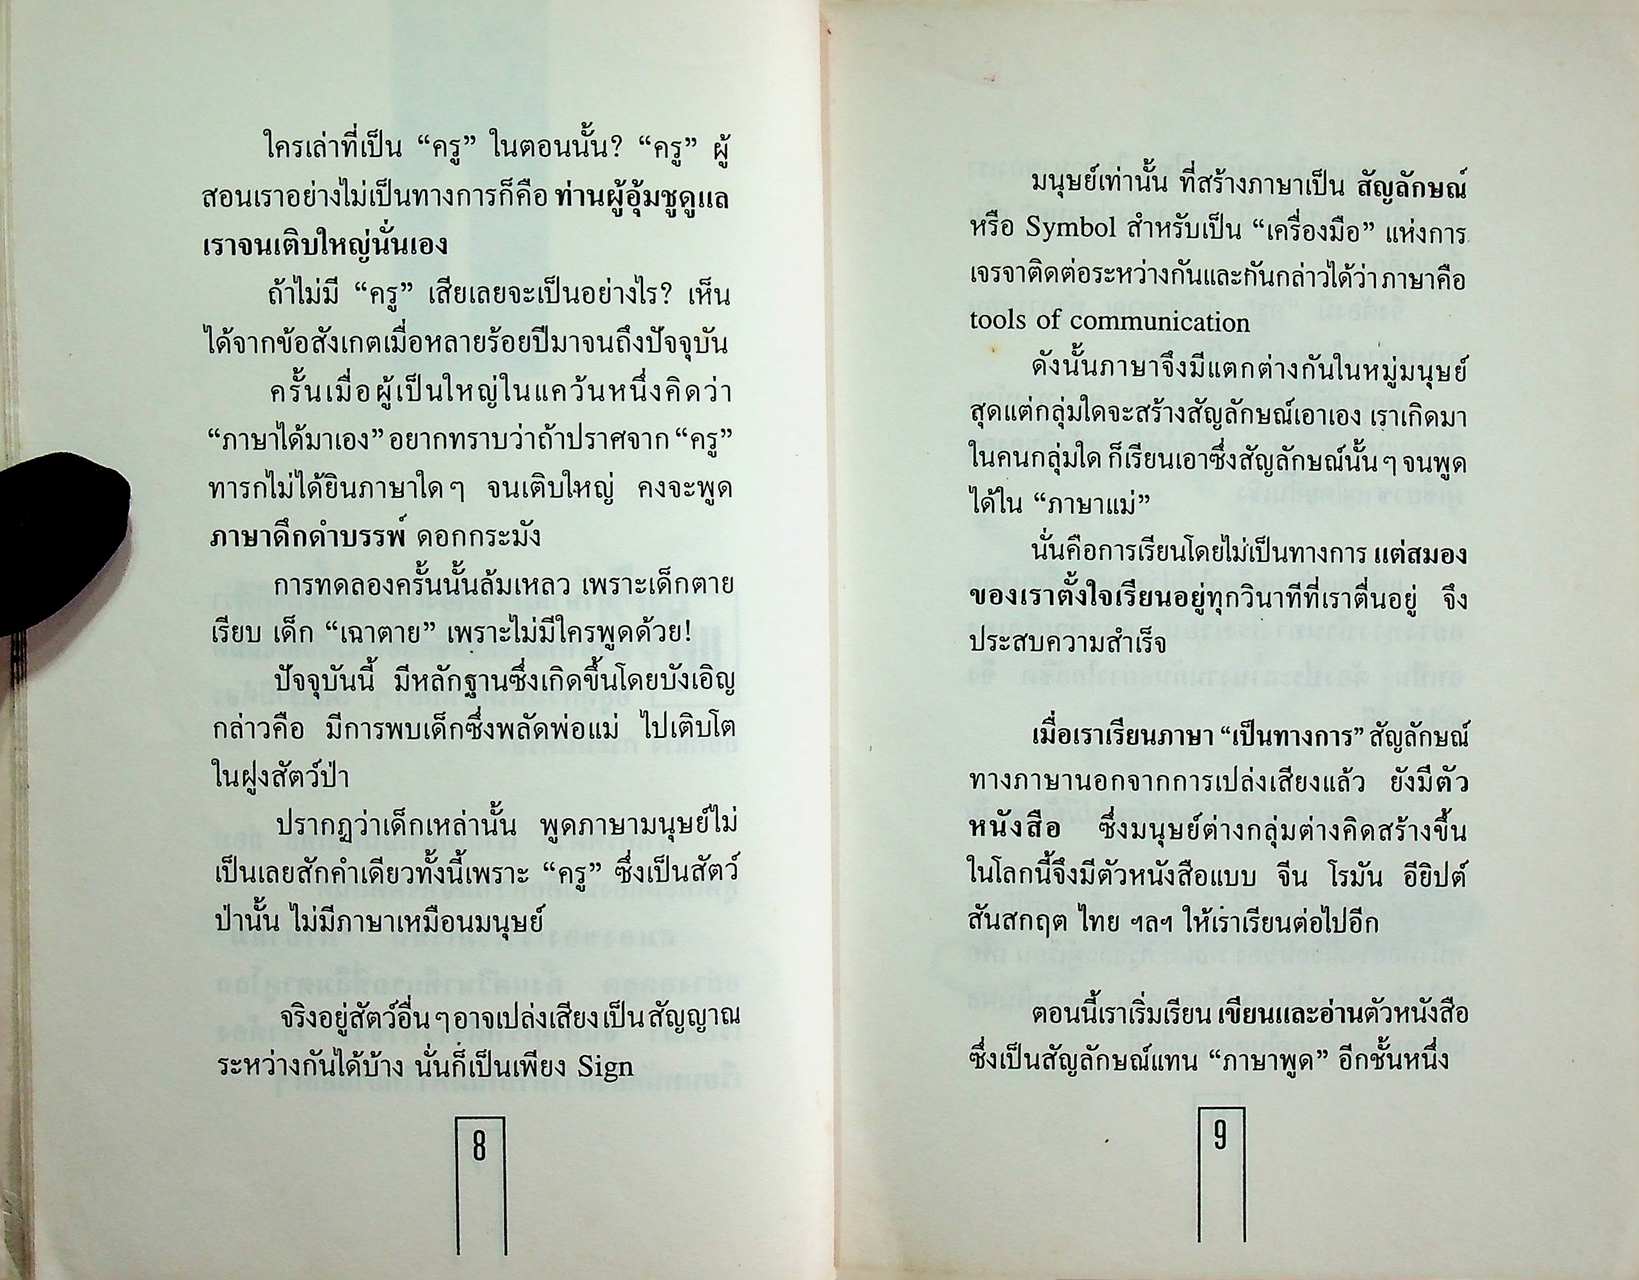 ใครเล่าที่เป็น “ครู” ในตอนนั้น? “ครู” ผู้
สอนเราอย่างไม่เป็นทางการก็คือ ท่านผู้อุ้มชูดูแล
เราจนเติบใหญ่นั่นเอง
ถ้าไม่มี “ครู” เสียเลยจะเป็นอย่างไร? เห็น
ได้จากข้อสังเกตเมื่อหลายร้อยปีมาจนถึงปัจจุบัน
ครั้นเมื่อผู้เป็นใหญ่ในแคว้นหนึ่งคิดว่า
“ภาษาได้มาเอง” อยากทราบว่าถ้าปราศจาก “ครู”
ทารกไม่ได้ยินภาษาใดๆ จนเติบใหญ่ คงจะพูด
ภาษาดึกดำบรรพ์ ดอกกระมัง
การทดลองครั้นนั้นล้มเหลว เพราะเด็กตาย
เรียบ เด็ก “เฉาตาย” เพราะไม่มีใครพูดด้วย!
ปัจจุบันนี้ มีหลักฐานซึ่งเกิดขึ้นโดยบังเอิญ
กล่าวคือ มีการพบเด็กซึ่งพลัดพ่อแม่ ไปเติบโต
ในฝูงสัตว์ป่า
ปรากฏว่าเด็กเหล่านั้น พูดภาษามนุษย์ไม่
เป็นเลยสักคำเดียวทั้งนี้เพราะ “ครู” ซึ่งเป็นสัตว์
ป่านั้น ไม่มีภาษาเหมือนมนุษย์
จริงอยู่สัตว์อื่นๆอาจเปล่งเสียงเป็นสัญญาณ
ระหว่างกันได้บ้าง นั่นก็เป็นเพียง Sign
8
มนุษย์เท่านั้น ที่สร้างภาษาเป็น สัญลักษณ์
หรือ Symbol สำหรับเป็น “เครื่องมือ” แห่งการ
เจรจาติดต่อระหว่างกันและกันกล่าวได้ว่าภาษาคือ
tools of communication
ดังนั้นภาษาจึงมีแตกต่างกันในหมู่มนุษย์
สุดแต่กลุ่มใดจะสร้างสัญลักษณ์เอาเอง เราเกิดมา
ในคนกลุ่มใด ก็เรียนเอาซึ่งสัญลักษณ์นั้นๆ จนพูด
ได้ใน “ภาษาแม่”
นั่นคือการเรียนโดยไม่เป็นทางการ แต่สมอง
ของเราตั้งใจเรียนอยู่ทุกวินาทีที่เราตื่นอยู่ จึง
ประสบความสำเร็จ
เมื่อเราเรียนภาษา “เป็นทางการ” สัญลักษณ์
ทางภาษานอกจากการเปล่งเสียงแล้ว ยังมีตัว
หนังสือ ซึ่งมนุษย์ต่างกลุ่มต่างคิดสร้างขึ้น
ในโลกนี้จึงมีตัวหนังสือแบบ จีน โรมัน อียิปต์
สันสกฤต ไทย ฯลฯ ให้เราเรียนต่อไปอีก
ตอนนี้เราเริ่มเรียน เขียนและอ่านตัวหนังสือ
ซึ่งเป็นสัญลักษณ์แทน “ภาษาพูด” อีกชั้นหนึ่ง
9